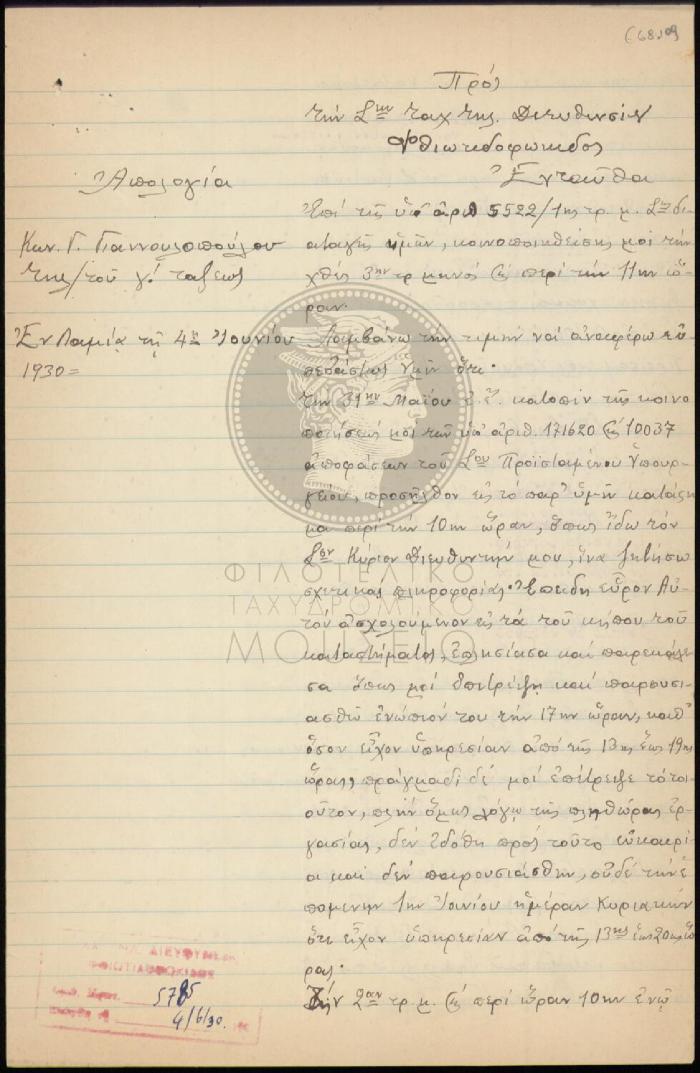 (68109)
Πρός
τήν Σην ταχ/τής. Διευθυνσιν
Φθιωτιδοφωκιδος
Ἐνταῦθα
Ἀπολογία
Κων. Γ. Γιαννουλοπούλου
της/τοῦ γ! τάξεως
Ἐν Λαμίᾳ τῇ 4ῃ Ἰουνίου
1930=
Ἐπί τῆς ὑπ' ἀριθ 5522/1ης τρ. μ. Σης δι
αταγῆς ἡμῶν, κοινοποιηθείσης μοι τήν
χθες 3ην τρ μηνός καί περί τήν 11ην ὥ-
ραν.
Λαμβάνω τήν τιμήν νά ἀναφέρω εὐ
πειθάστως ὑμῖν ὅτι.
τήν 31ην Μαΐου ἐ.ἔ. κατοπιν τῆς κοινο
ποιήσεώς μοί τῶν ὑπ' ἀριθ. 171620 καί 10037
ἀποφάσεων τοῦ Σου Προϊσταμένου Ὑπουρ
γείου, προσῆλθον εἰς τό παρ' ὑμῖν κατάστη
μα περί τήν 10ην ὥραν, ὅπως ἴδω τόν
Σον Κύριον Διευθυντήν μου, ἵνα ζητήσω
σχετικας πληροφορίας. Ἐπειδη εὗρον Αὐ
τόν ἀσχολούμενον εἰς τά τοῦ κήπου τοῦ
καταστήματος, ἐπλησίασα και παρεκάλε
σα ὅπως μοί ἐπιτρέψῃ καί παρουσι
ασθῶ ἐνώπιόν του τήν 17ην ὥραν, καθ'
ὅσον εἶχον ὑπηρεσίαν ἀπό τῆς 13ης ἕως 19ης
ὥρας, πρᾶγμα δέ μοί ἐπέτρεψε τό τοι
οῦτον, πλήν ὅμως λόγῳ τῆς πληθώρας ἐρ
γασίας, δέν ἐδόθη πρός τοῦτο εὐκαιρί
α και δέν παρουσιάσθην, οὐδέ τήν ἑ
πομένην 1ην Ἰουνίου ἡμέραν Κυριακήν
ὅτι εἶχον ὑπηρεσίαν ἀπό τῆς 13ης ἕως 20ης ὥ
ρας.
Τήν 2αν τρ. μ. καί περί ὥραν 10ην ἐνῷ
ΦΙΛΟΤΕΛΙΚΟ
ΤΑΧΥΔΡΟΜΙΚΟ
ΜΟΥΣΕΙΟ
ΔΙΕΥΘΥΝΣΙΣ
ΦΘΙΩΤΙΔΟΦΩΚΙΔΟΣ
5785
4/6/30.